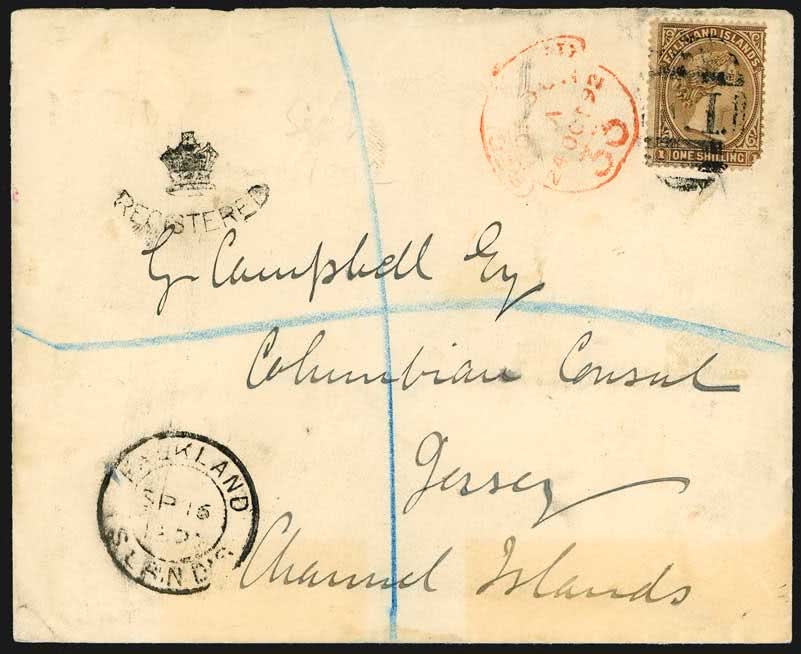 FALKLAND ISLANDS
1 ONE SHILLING 1
F.I.
24 OC 92
REGISTERED
G. Campbell Esq
Columbian Consul
Jersey
Channel Islands
FALKLAND
SP 16
ISLANDS